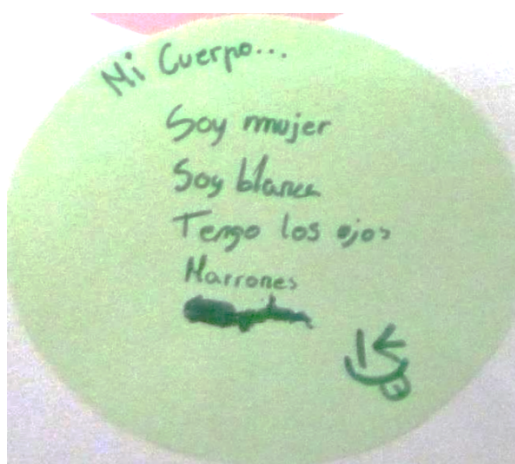 Mi Cuerpo...
Soy mujer
Soy blanca
Tengo los ojos
Marrones